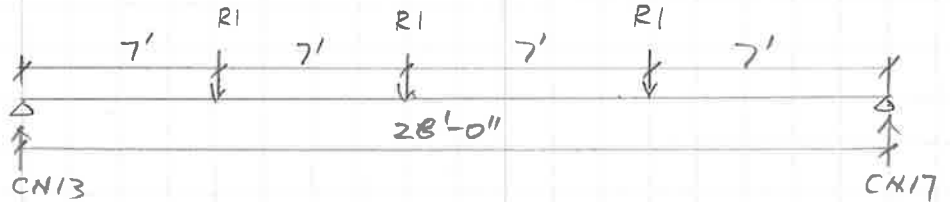 R1 R1 R1
7' 7' 7' 7'
28'-0"
CN13 CN17